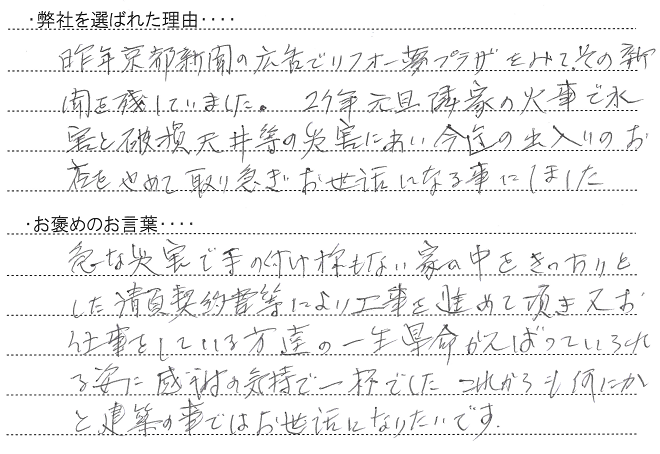 ・弊社を選ばれた理由・・・・
昨年京都新聞の広告でリフォー夢プラザをみてその新
聞を残していました。27年元旦隣家の火事で水
害と破損天井等の災害にあい今迄の出入りのお
店をやめて取り急ぎお世話になる事にしました
・お褒めのお言葉・・・・
急な災害で手の付け様もない家の中をきっちりと
した請負契約書等により工事を進めて頂き又お
仕事をしている方達の一生県命がんばっていられ
る姿に感謝の気持で一杯でしたこれからも何にか
と建築の事ではお世話になりたいです.